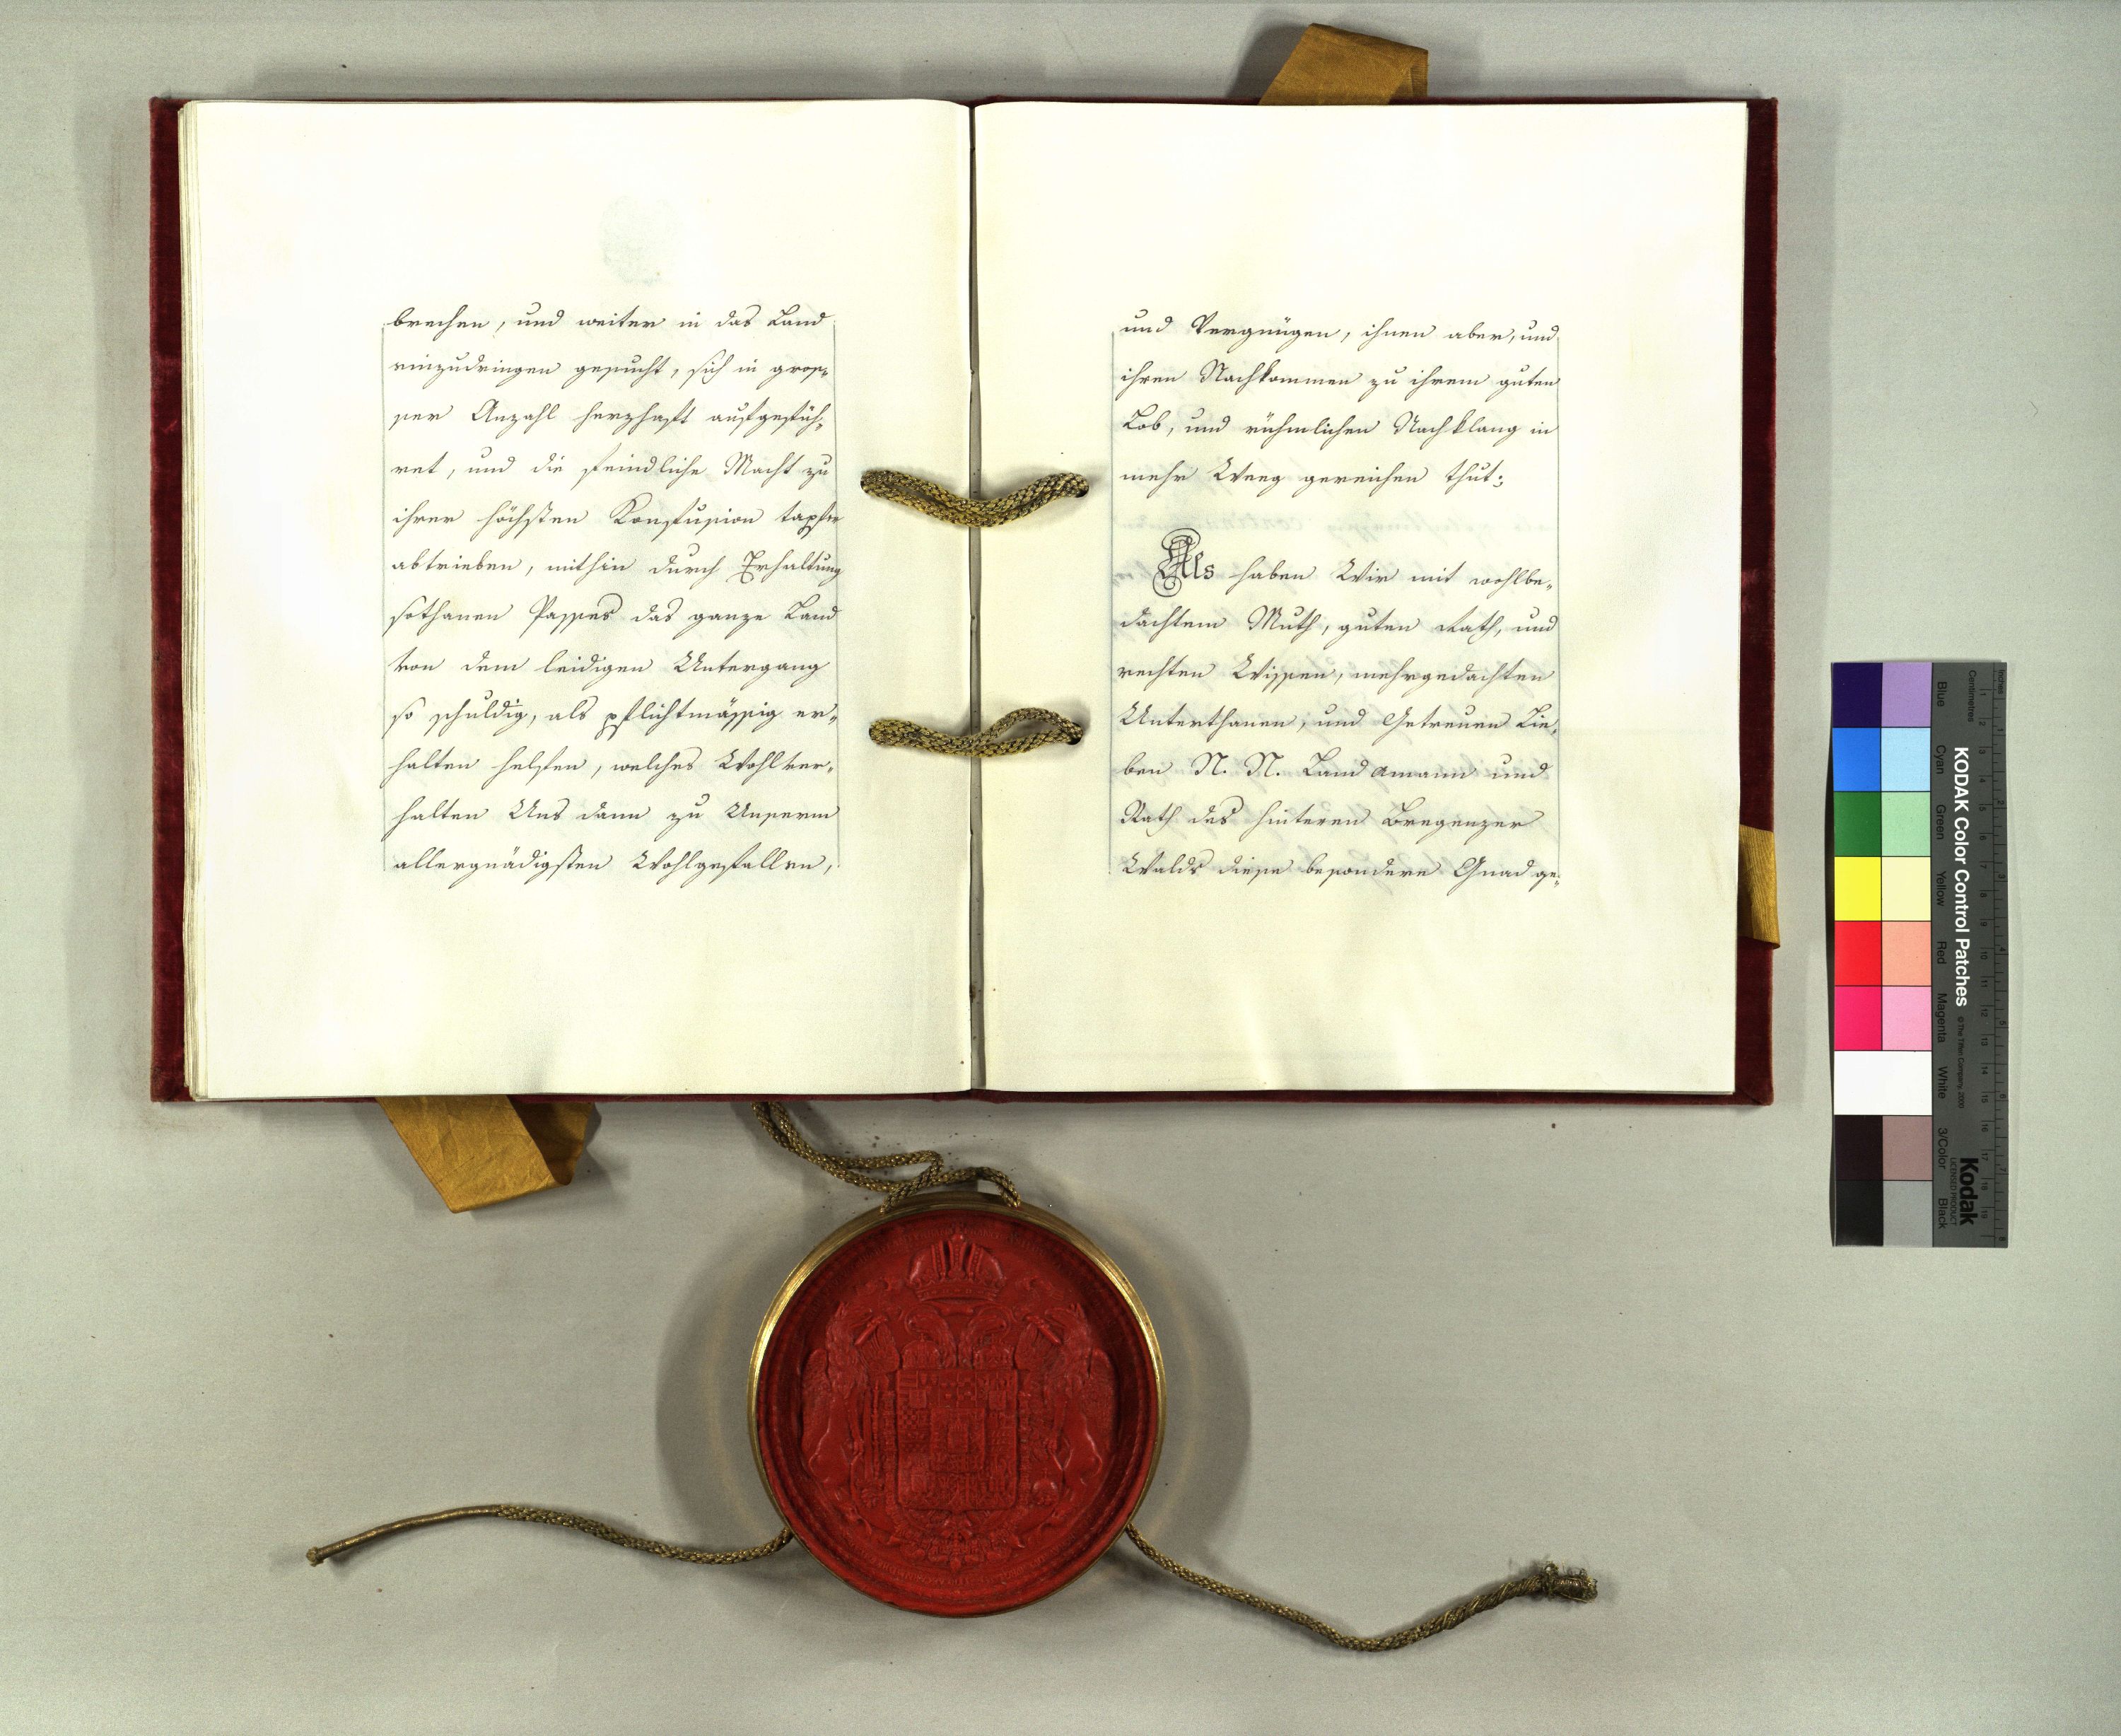 brechen, und weiter in das Land
einzudringen gesucht, sich in gros-
ser Anzahl herzhaft aufgefüh-
ret, und die feindliche Macht zu
ihrer höchsten Konfusion tapfer
abtrieben, mithin durch Erhaltung
sothanen Passes das ganze Land
von dem leidigen Untergang
so schuldig, als pflichtmässig er-
halten helfen, welches Wohlver-
halten Uns dann zu Unserm
allergnädigsten Wohlgefallen,
und Vergnügen, ihnen aber, und
ihren Nachkommen zu ihrem guten
Lob, und rühmlichen Nachklang in
mehr Weeg gereichen thut:
Als haben Wir mit wohlbe-
dachtem Muth, guten Rath, und
rechten Wissen, mehrgedachten
Unterthanen, und Getreuen Lie-
ben N. N. Landamann und
Rath des hinteren Bregenzer
Walds diese besondere Gnad ge-
KODAK Color Control Patches
© The Tiffen Company, 2000
Kodak
LICENSED PRODUCT
Blue Cyan Green Yellow Red Magenta White 3/Color Black
Inches 1 2 3 4 5 6 7 8
Centimetres 1 2 3 4 5 6 7 8 9 10 11 12 13 14 15 16 17 18 19